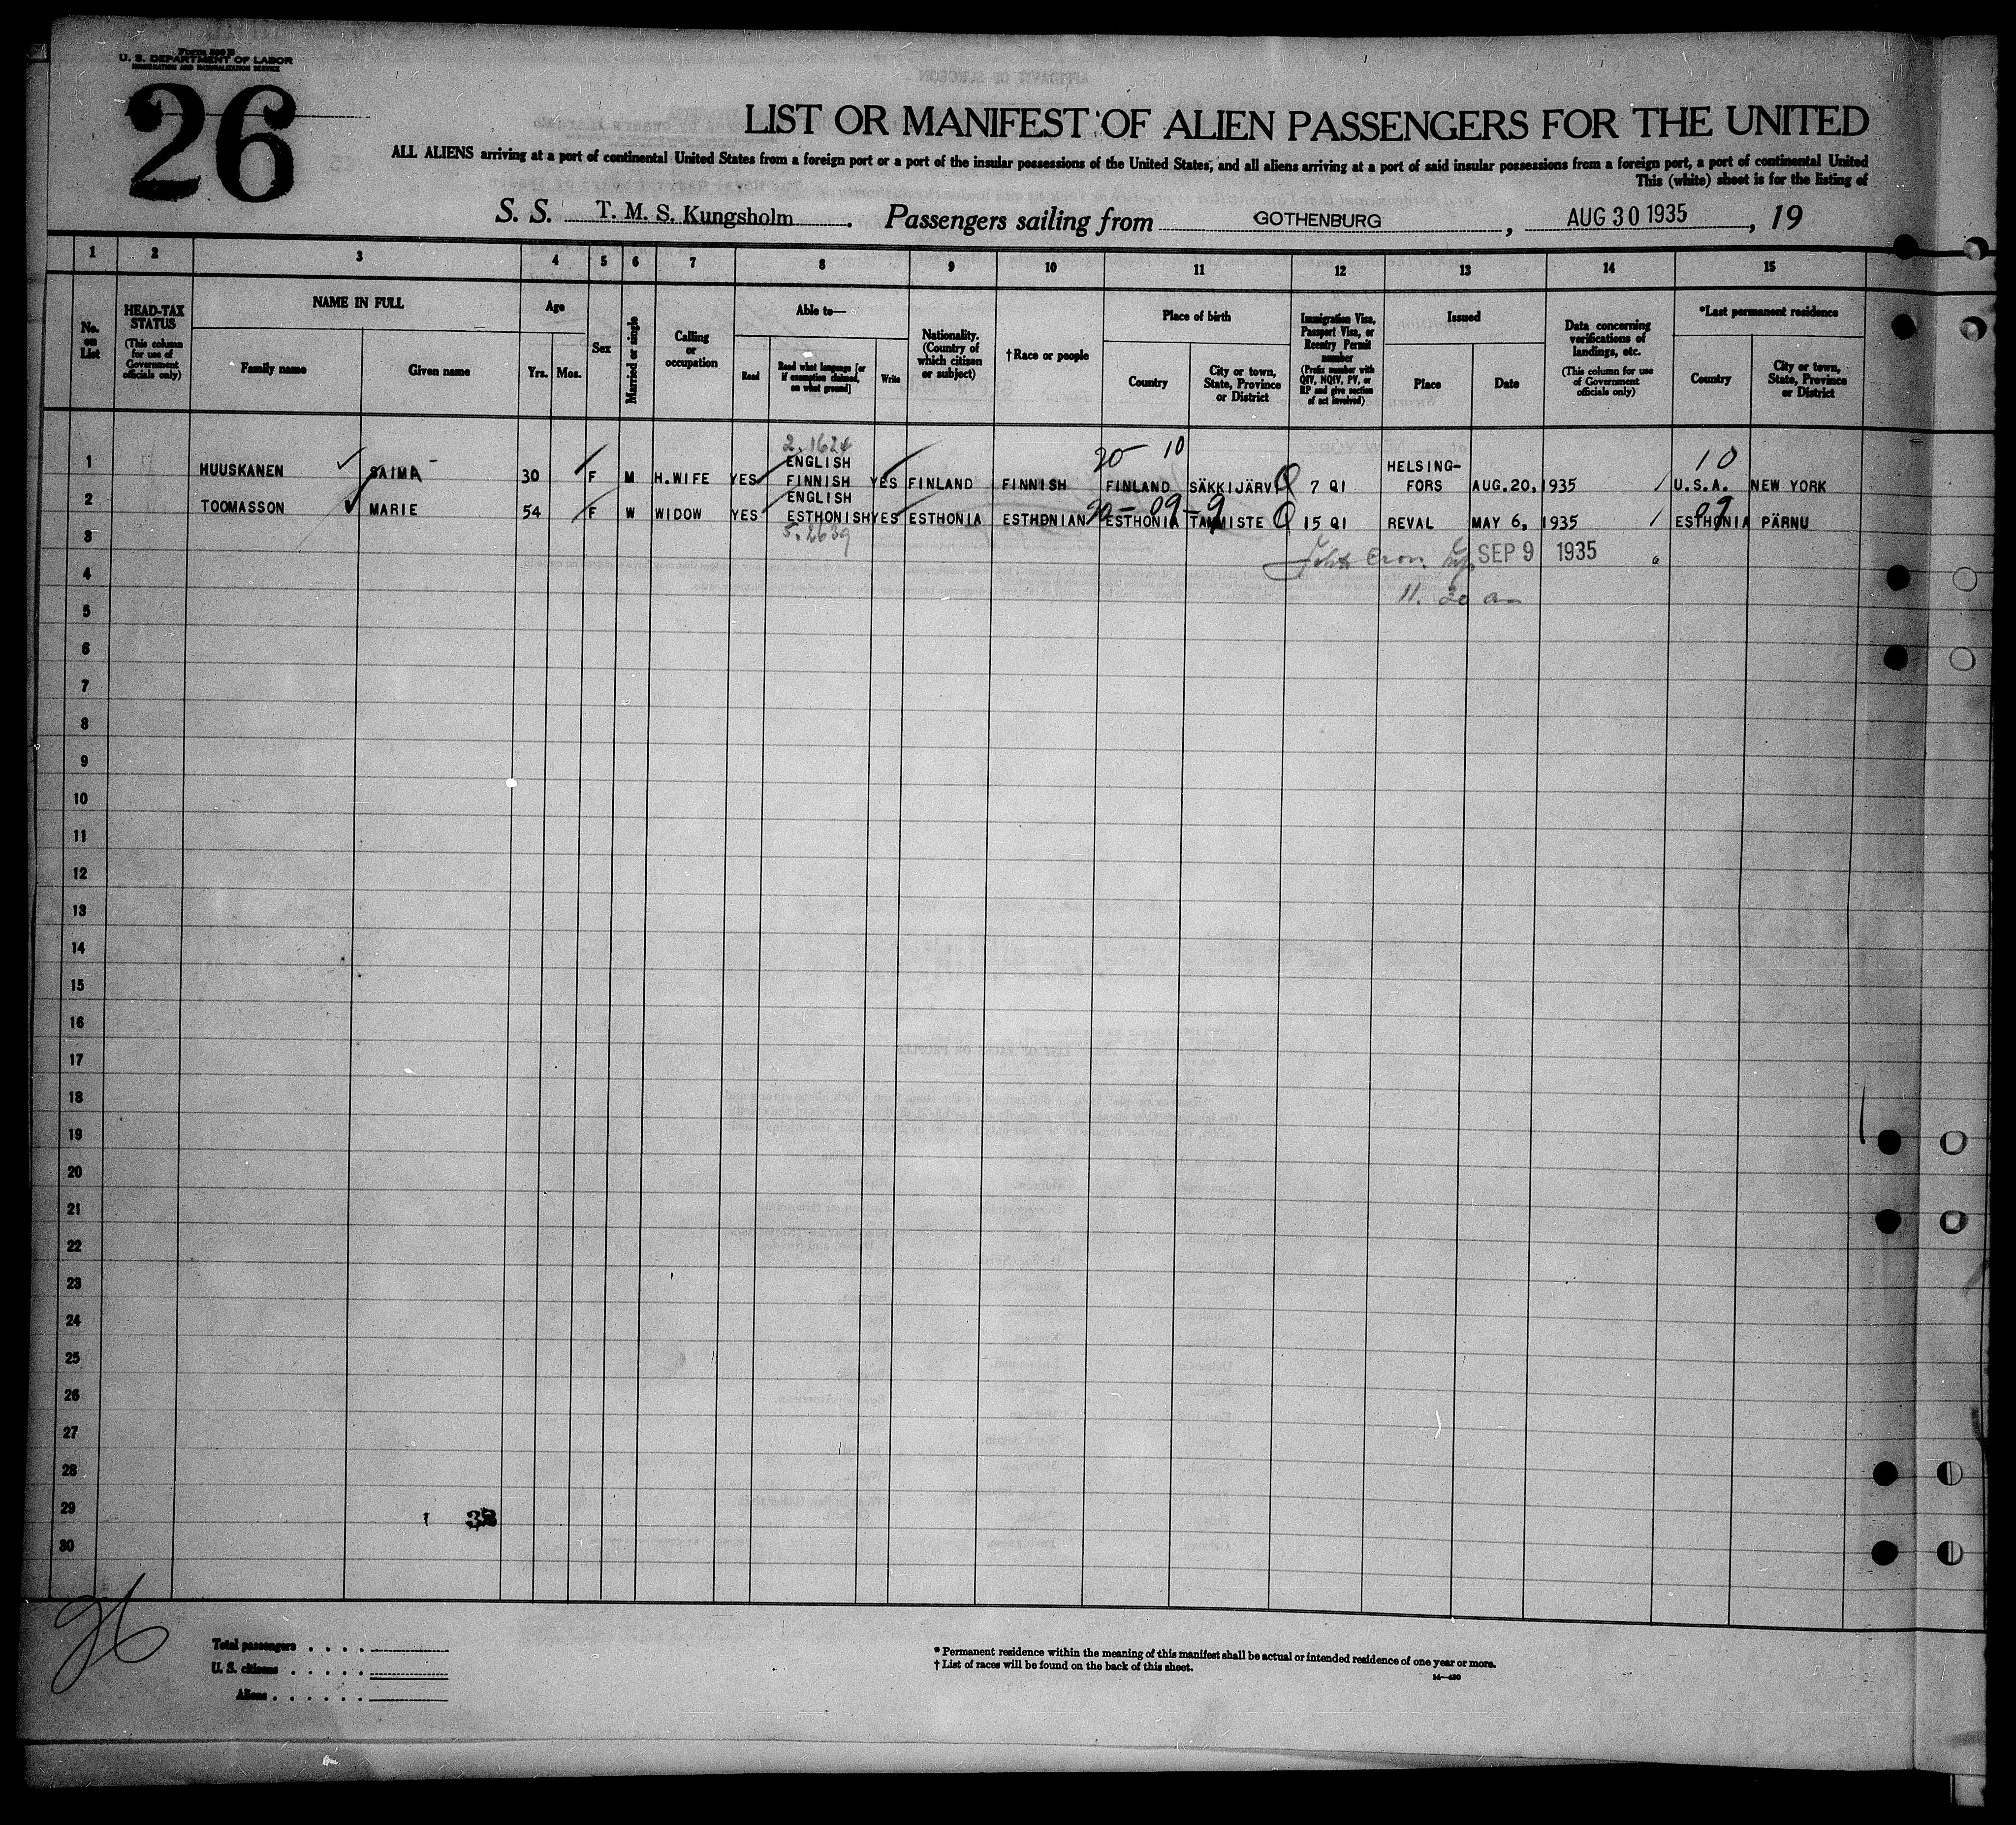 Form 500 B
U. S. DEPARTMENT OF LABOR
IMMIGRATION AND NATURALIZATION SERVICE
26
LIST OR MANIFEST OF ALIEN PASSENGERS FOR THE UNITED
ALL ALIENS arriving at a port of continental United States from a foreign port or a port of the insular possessions of the United States, and all aliens arriving at a port of said insular possessions from a foreign port, a port of continental United
This (white) sheet is for the listing of
S. S. T. M. S. Kungsholm. Passengers sailing from GOTHENBURG, AUG 30 1935, 19
1 2 3 4 5 6 7 8 9 10 11 12 13 14 15
No. on List
HEAD-TAX STATUS
(This column for use of Government officials only)
NAME IN FULL
Family name
Given name
Age
Yrs. Mos.
Sex
Married or single
Calling or occupation
Able to—
Read
Read what language [or if exemption claimed, on what ground]
Write
Nationality. (Country of which citizen or subject)
† Race or people
Place of birth
Country
City or town, State, Province or District
Immigration Visa, Passport Visa, or Reentry Permit number
(Prefix number with QIV, NQIV, PV, or RP and give section of act involved)
Issued
Place
Date
Data concerning verifications of landings, etc.
(This column for use of Government officials only)
*Last permanent residence
Country
City or town, State, Province or District
2.1624
20- 10
10
1 HUUSKANEN SAIMA 30 F M H.WIFE YES ENGLISH FINNISH YES FINLAND FINNISH FINLAND SÄKKIJÄRVI 7 QI HELSINGFORS AUG.20,1935 U.S.A. NEW YORK
2 TOOMASSON MARIE 54 F W WIDOW YES ENGLISH ESTHONISH YES ESTHONIA ESTHONIAN ESTHONIA TAMMISTE 15 QI REVAL MAY 6, 1935 ESTHONIA PÄRNU
20-09-9
09
5.2639
3
SEP 9 1935
4
11. 20 am
5
6
7
8
9
10
11
12
13
14
15
16
17
18
19
20
21
22
23
24
25
26
27
28
29
30
26
Total passengers
U. S. citizens
Aliens
* Permanent residence within the meaning of this manifest shall be actual or intended residence of one year or more.
† List of races will be found on the back of this sheet.